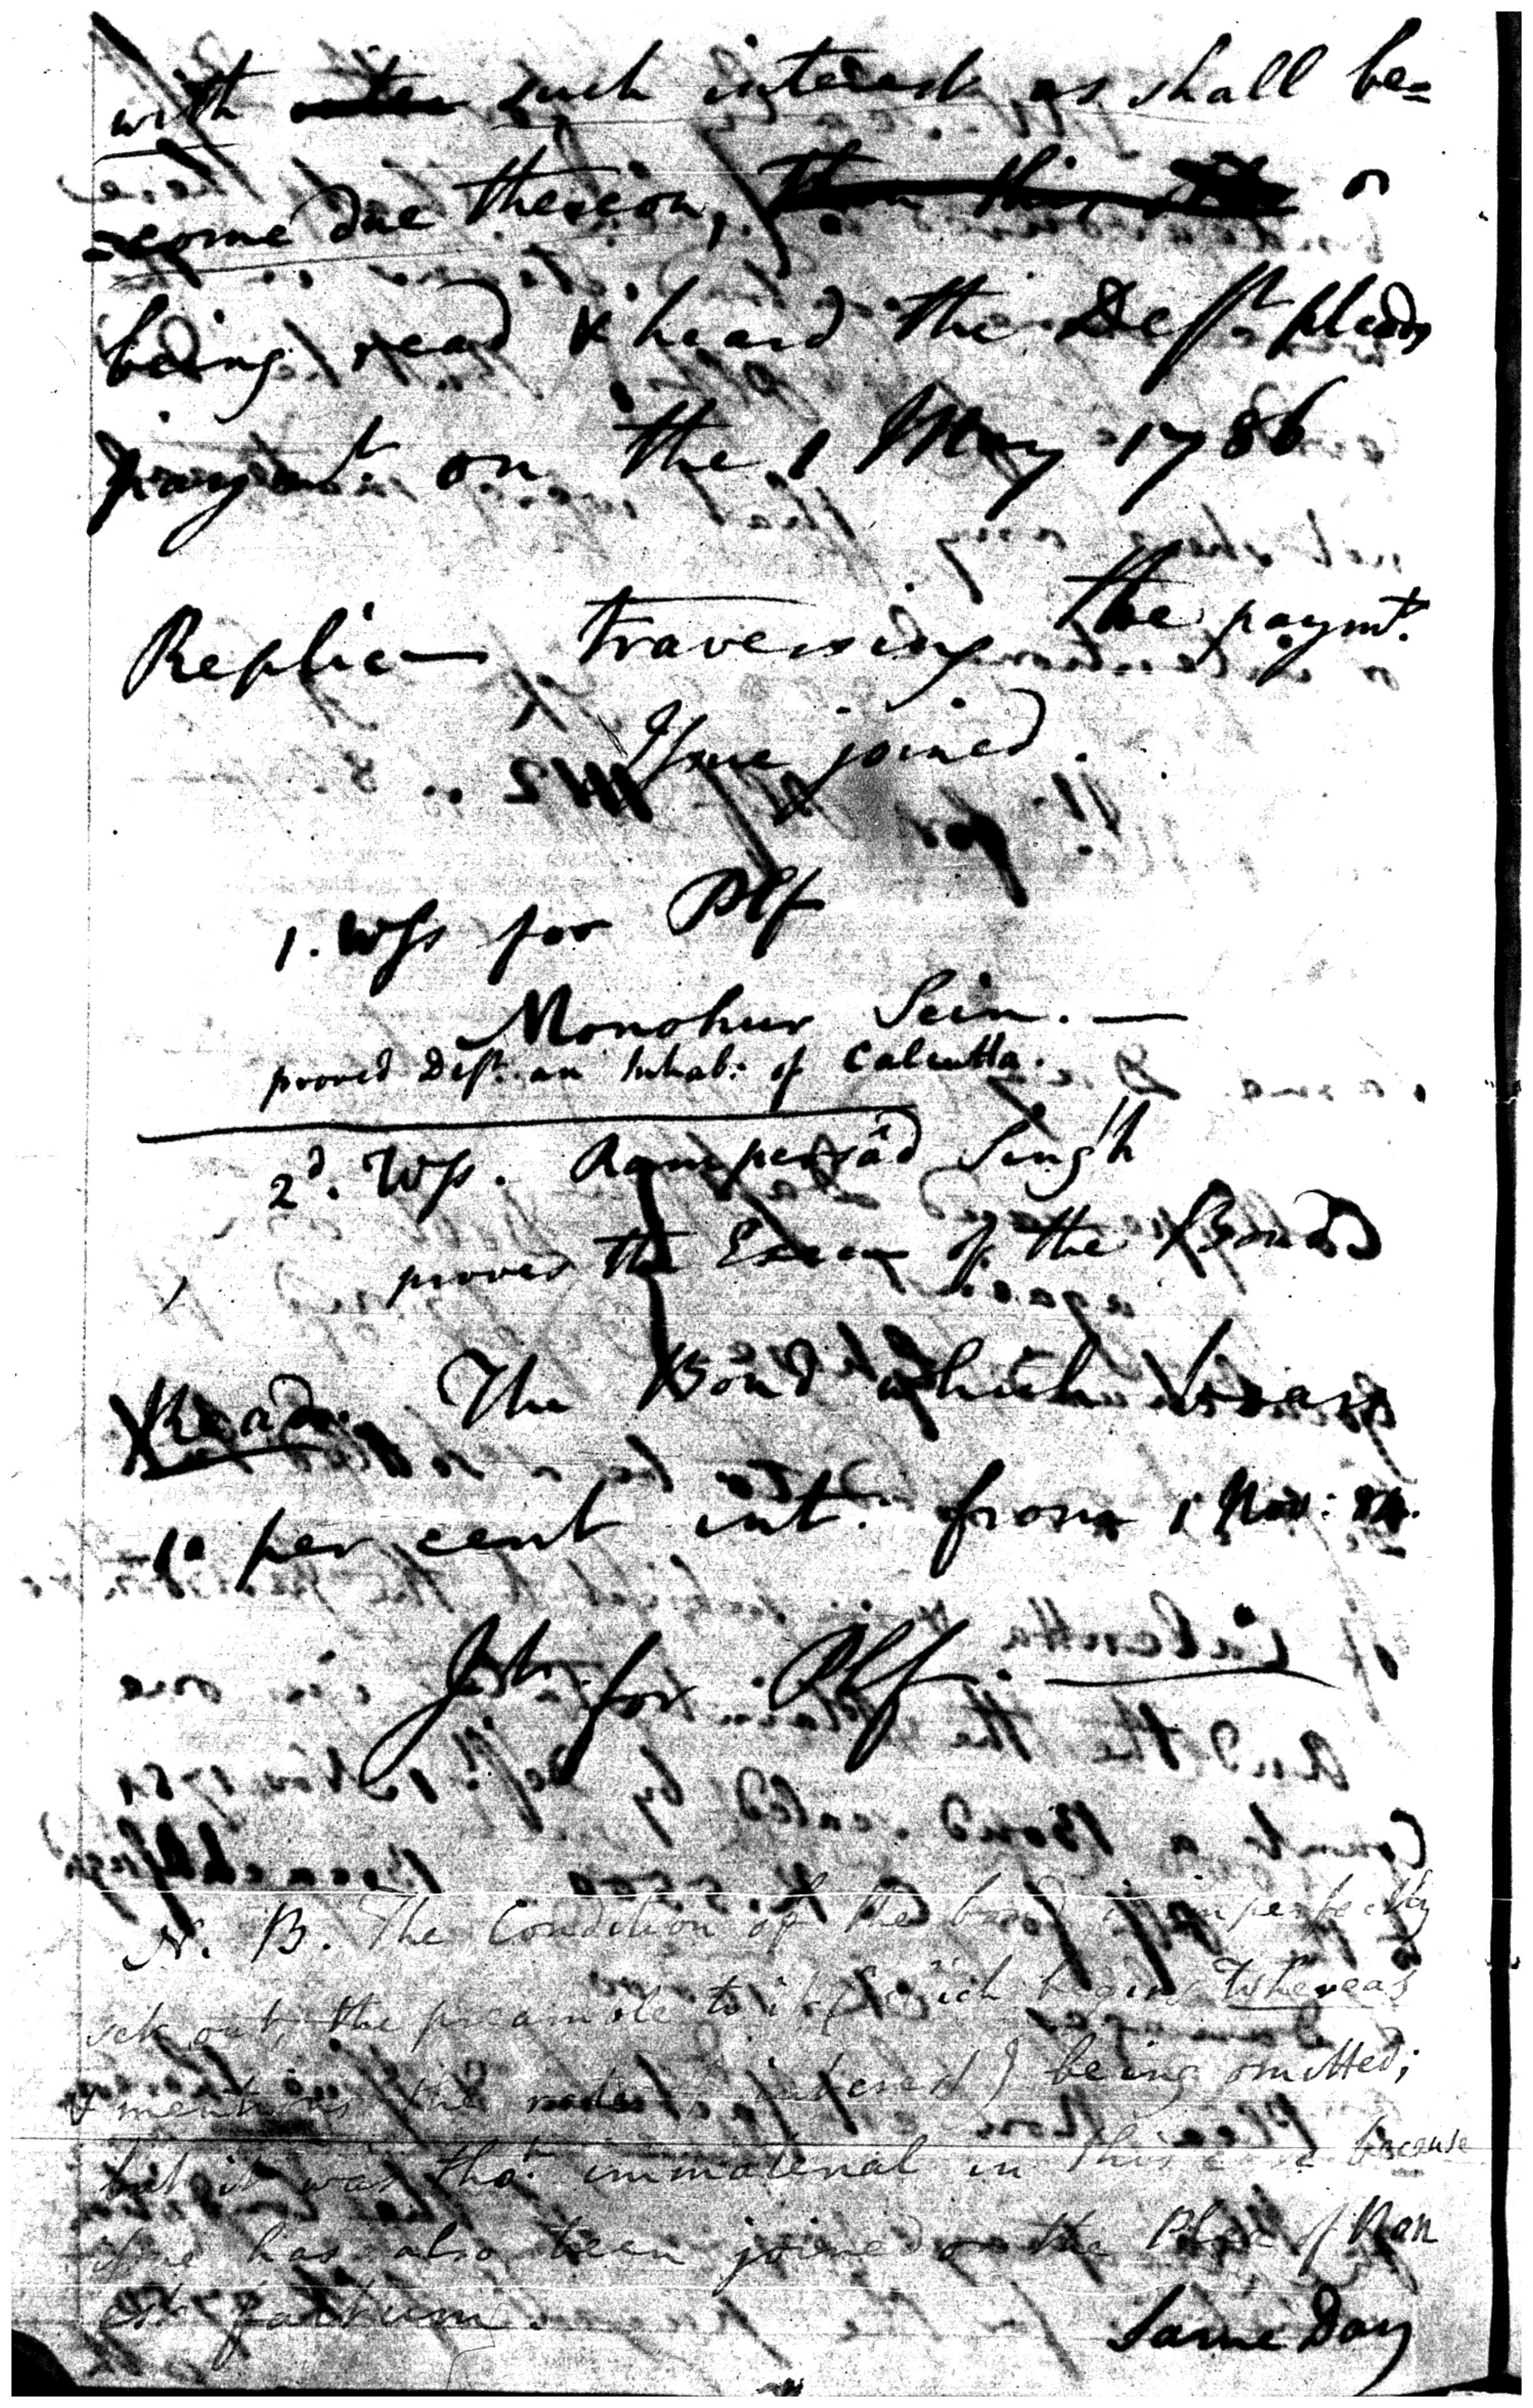 with such interest as shall be=
=come due thereon,
being read & heard the Deft pleads
paymt. on the 1 May 1786
Replicn traversing the paymt.
Issue joined.
1. Wss for Plf
Monohur Sein. —
proved Deft. an Inhab: of Calcutta.
2d. Wss. Rampersad Singh
proves the Execn of the Bond
Read. The Bond which bears
per cent int. from 1 Nov: 84.
Jt. for Plf.
N. B. The Condition of the bond is imperfectly
set out, the preamble to it (which begins Whereas
& mentions the interest) being omitted;
but it was thot. immaterial in this case because
issue has also been joined on the Plea of Non
est factum.
Same Day